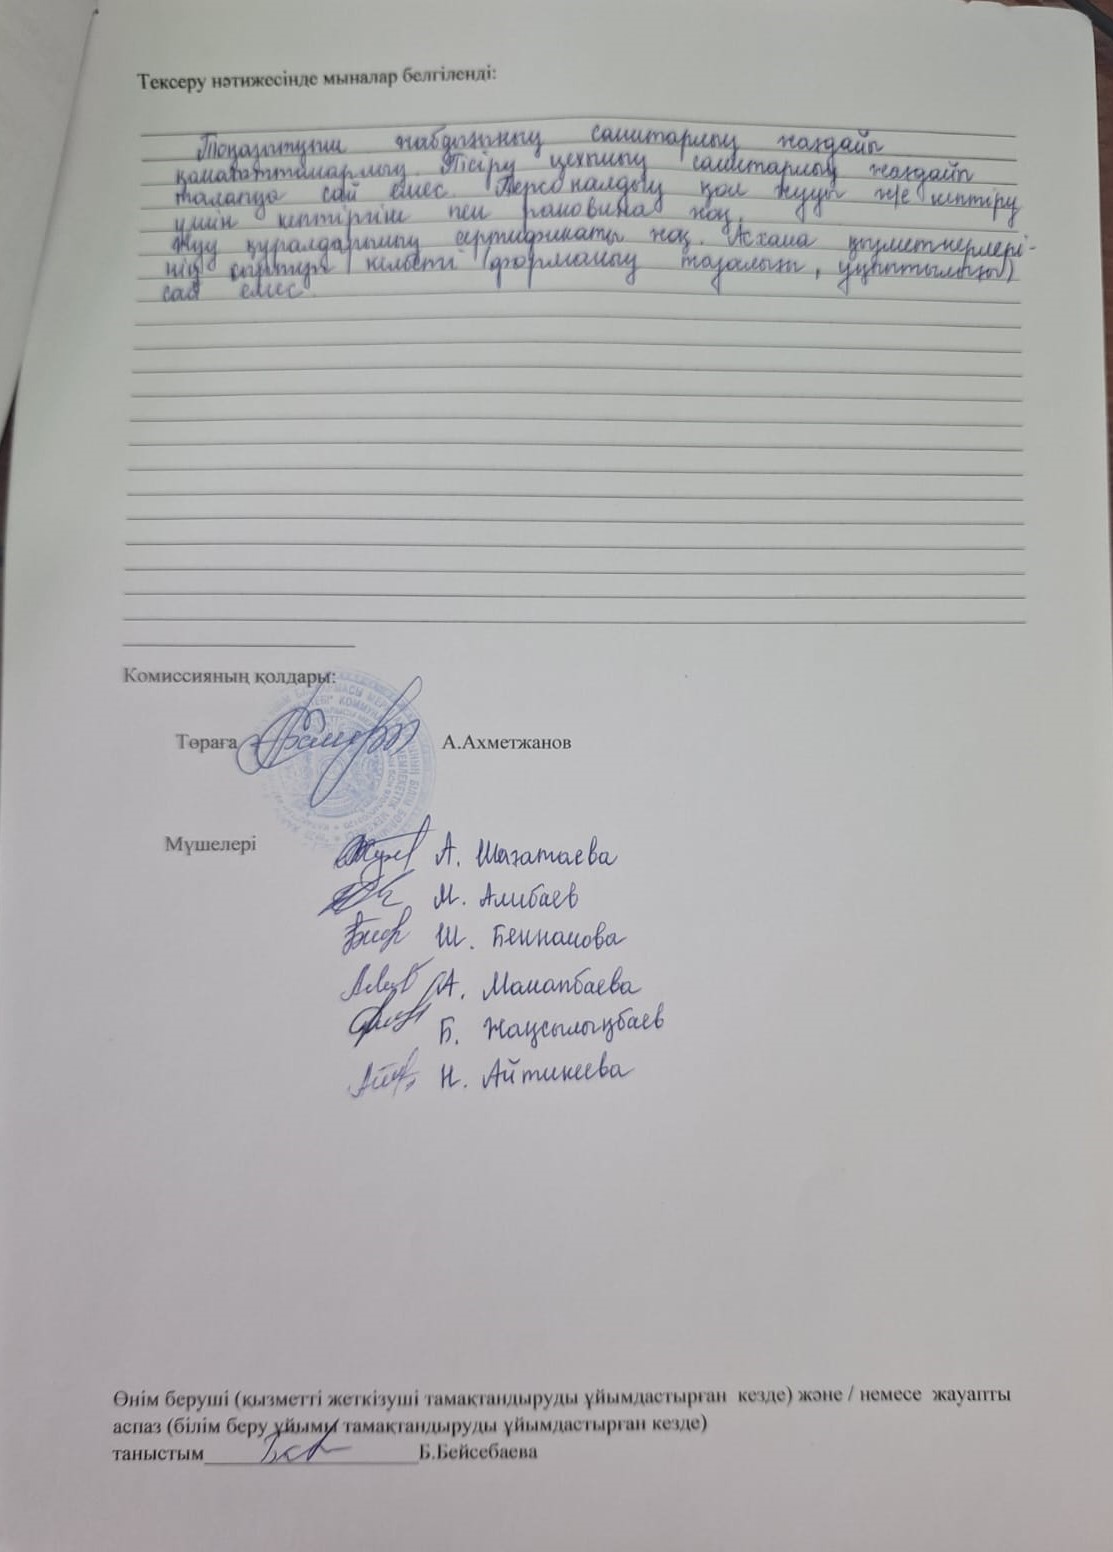 Тексеру нәтижесінде мыналар белгіленді:
Тоңазытқыш жабдығының санитарлық жағдайы
қанағаттанарлық. Пісіру цехының санитарлық жағдайы
талапқа сай емес. Персоналдың қол жууы ж/е кептіру
үшін кептіргіш пен раковина жоқ.
Жуу құралдарының сертификаты жоқ. Асхана қызметкерлері-
нің сыртқы келбеті (форманың тазалығы, ұқыптылығы)
сай емес.
Комиссияның қолдары:
Төраға А.Ахметжанов
Мүшелері
А. Шағатаева
М. Алибаев
Ш. Бекпанова
А. Манапбаева
Б. Жақсылықбаев
Н. Айтикеева
Өнім беруші (қызметті жеткізуші тамақтандыруды ұйымдастырған кезде) және / немесе жауапты
аспаз (білім беру ұйымы тамақтандыруды ұйымдастырған кезде)
таныстым Б.Бейсебаева